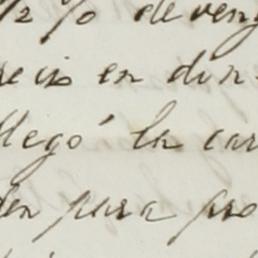 1/2 % deven
recio en din
llegó la car
den para pro